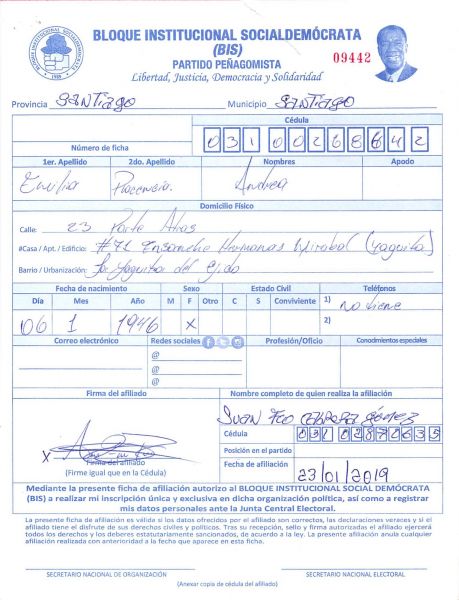 BLOQUE INSTITUCIONAL SOCIALDEMÓCRATA
(BIS)
PARTIDO PEÑAGOMISTA
Libertad, Justicia, Democracia y Solidaridad
09442
Provincia Santiago Municipio Santiago
Cédula
Número de ficha 031 0026864 2
1er. Apellido 2do. Apellido Nombres Apodo
Emilia Placencia Andrea
Domicilio Físico
Calle: 23 Parte Atras
#Casa / Apt. / Edificio: #71 Ensanche Hermanas Mirabal (Yaguita)
Barrio / Urbanización: La Yaguita del Ejido
Fecha de nacimiento Sexo Estado Civil Teléfonos
Día Mes Año M F Otro C S Conviviente 1) No tiene
06 1 1946 X 2)
Correo electrónico Redes sociales Profesión/Oficio Conocimientos especiales
@
@
@
Firma del afiliado Nombre completo de quien realiza la afiliación
Juan Fco Gómez
Cédula
Posición en el partido
X Firma del afiliado Fecha de afiliación
(Firme igual que en la Cédula) 23/01/2019
Mediante la presente ficha de afiliación autorizo al BLOQUE INSTITUCIONAL SOCIAL DEMÓCRATA
(BIS) a realizar mi inscripción única y exclusiva en dicha organización política, así como a registrar
mis datos personales ante la Junta Central Electoral.
La presente ficha de afiliación es válida si los datos ofrecidos por el afiliado son correctos, las declaraciones veraces y si el
afiliado tiene el disfrute de sus derechos civiles y políticos. Tras su recepción, sello y firma autorizados el afiliado ejercerá
todos los derechos y los deberes estatutariamente sancionados, de acuerdo a la ley. La presente afiliación anula cualquier
afiliación realizada con anterioridad a la fecha que aparece en esta ficha.
SECRETARIO NACIONAL DE ORGANIZACIÓN SECRETARIO NACIONAL ELECTORAL
(Anexar copia de cédula del afiliado)